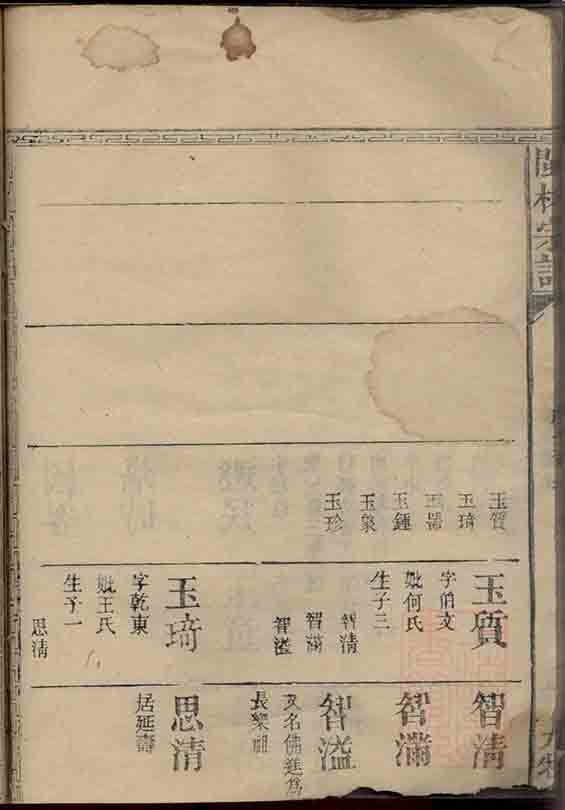 林宗譜
玉質
玉琦
玉鍾
玉泉
玉珍
玉質
字伯文
妣何氏
生子三
智清
智滿
智溢
玉琦
字乾東
妣王氏
生子一
思清
智清
智滿
智溢
又名佛進為
長樂祖
思清
居延壽